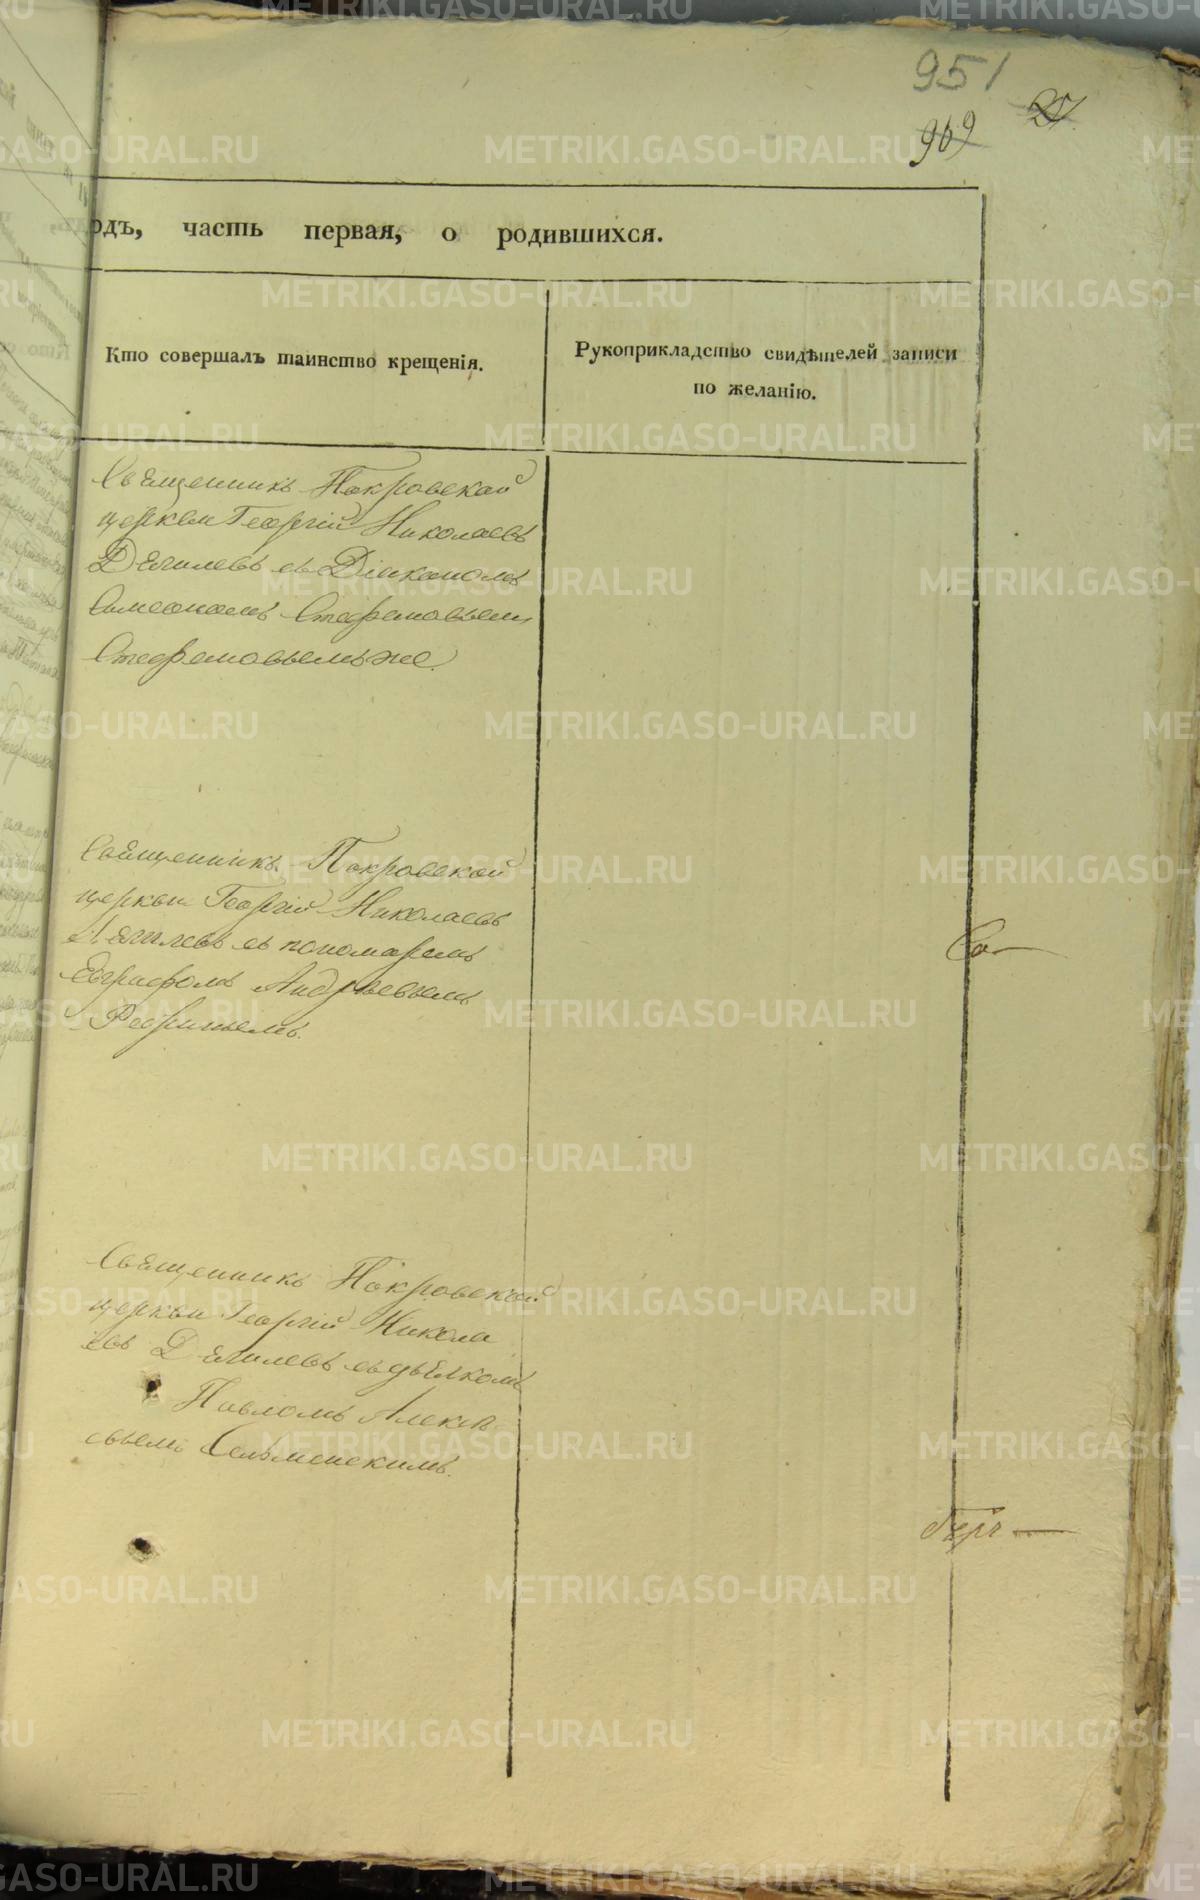 951
969
27.
одъ, часть первая, о родившихся.
Кто совершалъ таинство крещенія.
Рукоприкладство свидѣтелей записи
по желанію.
Священникъ Покровской
церкви Георгій Николаевъ
Дягилевъ съ Діакономъ
Симеономъ Стефановымъ
Стефановымъ же.
Священникъ Покровской
церкви Георгій Николаевъ
Дягилевъ съ пономаремъ
Евграфомъ Андреевымъ
Священникъ Покровской
церкви Георгій Никола
евъ Дягилевъ съ дьячкомъ
Павломъ Алексѣ
евымъ
METRIKI.GASO-URAL.RU